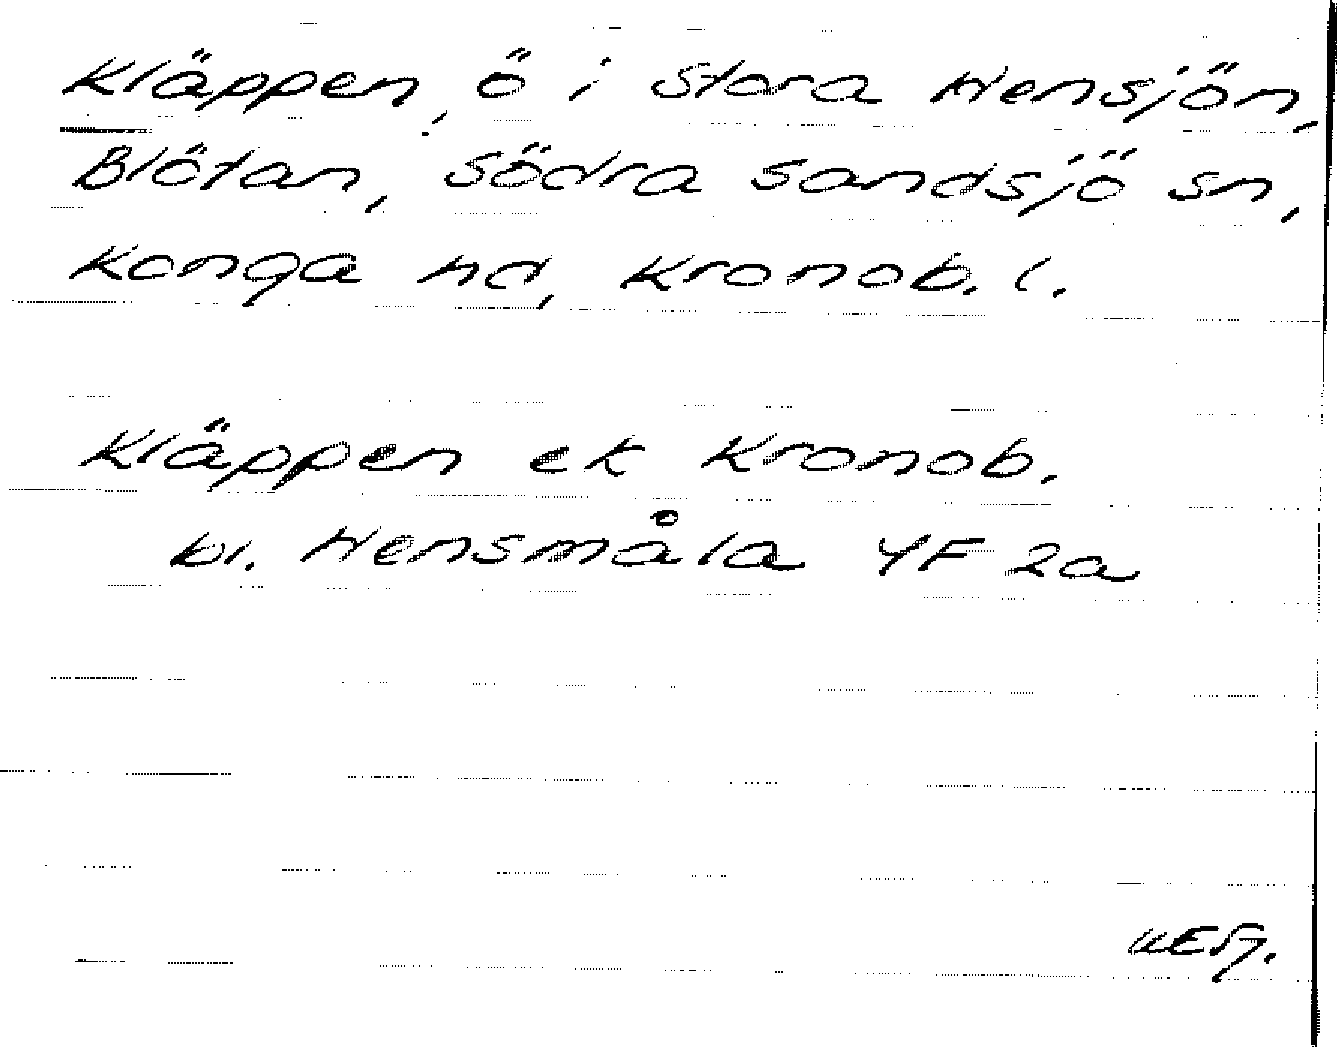 Kläppen, ö i Stora Hensjön,
Blötan, Södra Sandsjö sn,
Konga hd, Kronob. l.
Kläppen ek Kronob.
bl. Hensmåla 4F 2a